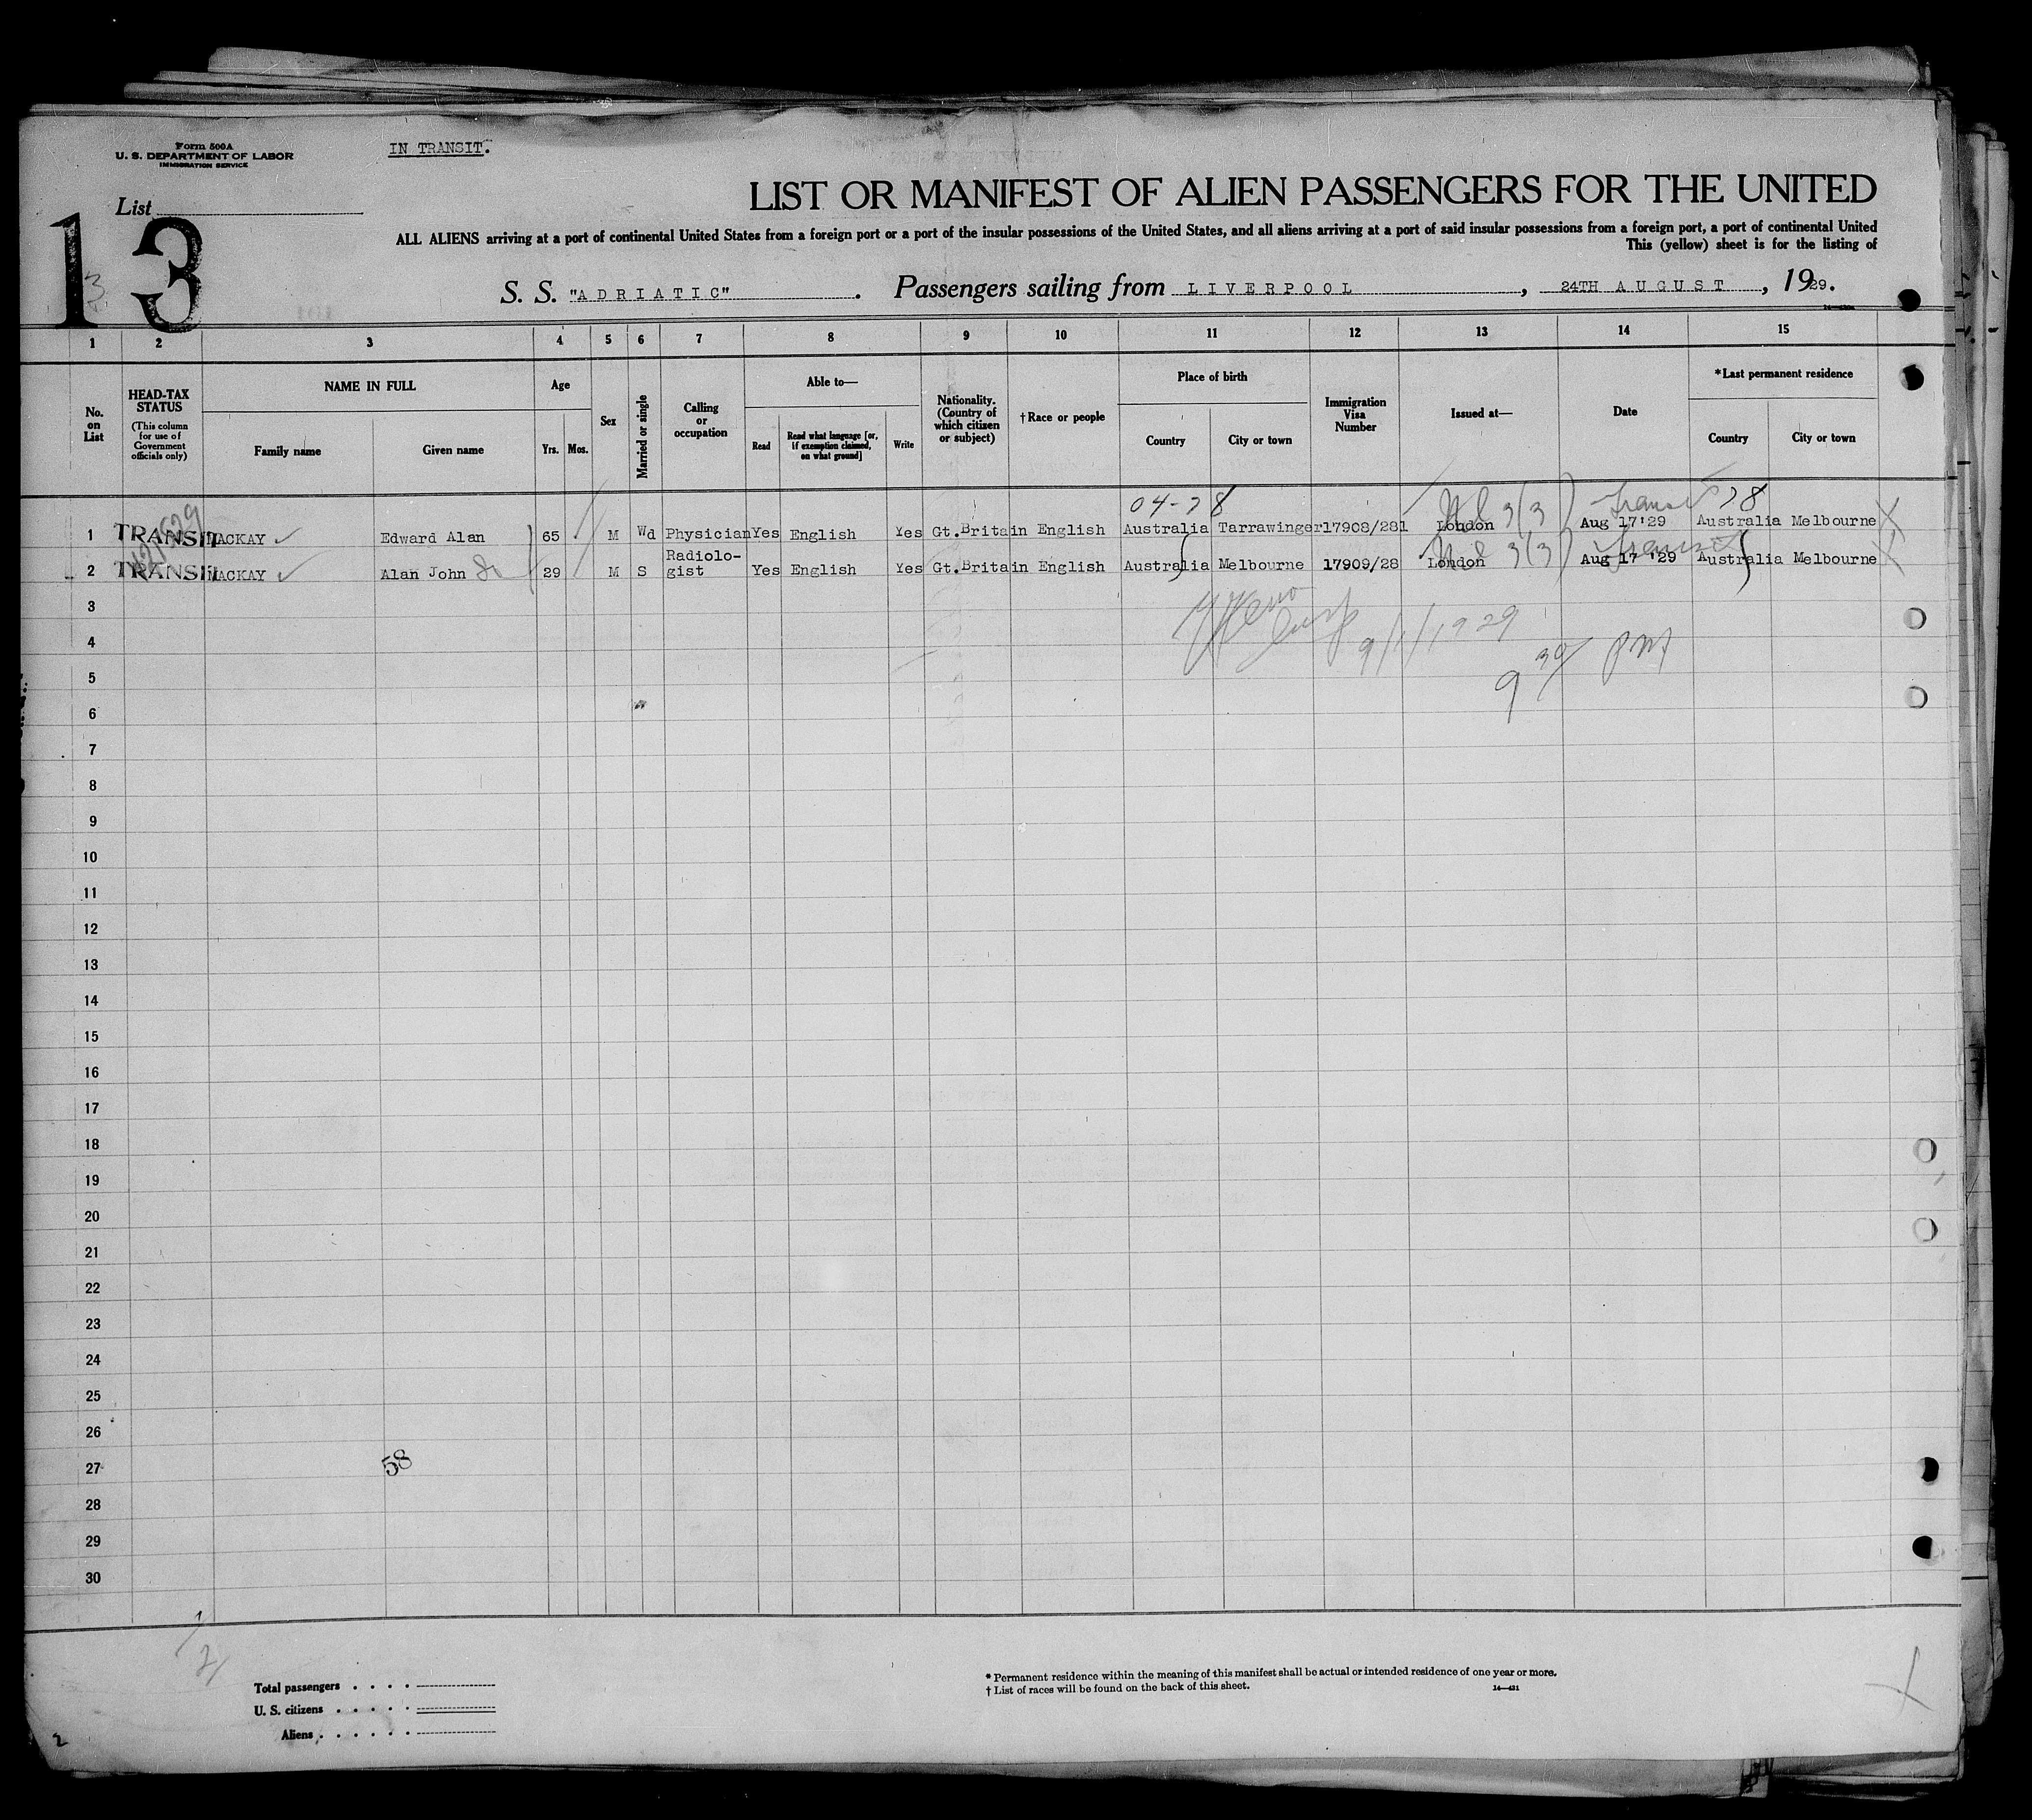 Form 500A
U. S. DEPARTMENT OF LABOR
IMMIGRATION SERVICE
IN TRANSIT.
List
13
3
LIST OR MANIFEST OF ALIEN PASSENGERS FOR THE UNITED
ALL ALIENS arriving at a port of continental United States from a foreign port or a port of the insular possessions of the United States, and all aliens arriving at a port of said insular possessions from a foreign port, a port of continental United
This (yellow) sheet is for the listing of
S. S. "ADRIATIC". Passengers sailing from LIVERPOOL, 24TH AUGUST, 1929.
1 2 3 4 5 6 7 8 9 10 11 12 13 14 15
No. on List
HEAD-TAX STATUS
(This column for use of Government officials only)
NAME IN FULL
Family name
Given name
Age
Yrs.
Mos.
Sex
Married or single
Calling or occupation
Able to—
Read
Read what language [or, if exemption claimed, on what ground]
Write
Nationality. (Country of which citizen or subject)
† Race or people
Place of birth
Country
City or town
Immigration Visa Number
Issued at—
Date
* Last permanent residence
Country
City or town
04-78 3(3) Transit 78
1 TRANSIT MACKAY Edward Alan 65 M Wd Physician Yes English Yes Gt.Britain English Australia Tarrawinger 17908/281 London Aug 17 '29 Australia Melbourne
3(3) Transit
2 TRANSIT MACKAY Alan John 29 M S Radiolo-gist Yes English Yes Gt.Britain English Australia Melbourne 17909/28 London Aug 17 '29 Australia Melbourne
3
9/1/1929
4
9 30/ PM
5
6
7
8
9
10
11
12
13
14
15
16
17
18
19
20
21
22
23
24
25
26
27
58
28
29
30
1
2/
Total passengers . . . .
U. S. citizens . . . . .
Aliens . . . . . .
* Permanent residence within the meaning of this manifest shall be actual or intended residence of one year or more.
† List of races will be found on the back of this sheet.
14—431
2